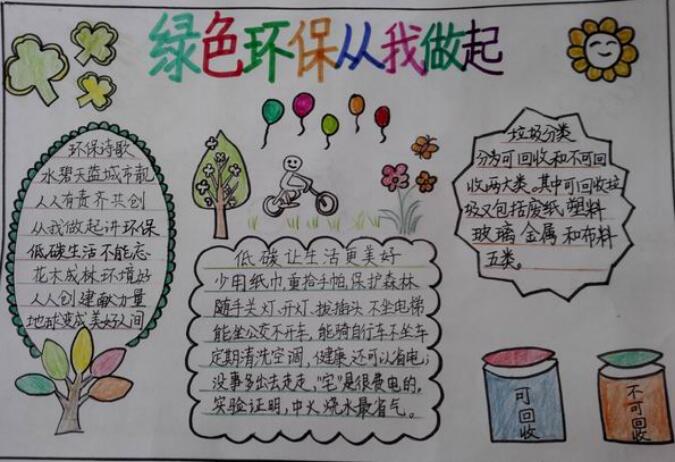 绿色环保从我做起
环保诗歌
水碧天蓝城市靓
人人有责齐共创
从我做起讲环保
低碳生活不能忘
花木成林环境好
人人创建献力量
地球变成美好人间
低碳让生活更美好
少用纸巾,重拾手帕,保护森林
随手关灯、开灯、拔插头,不坐电梯
能坐公交不开车,能骑自行车不坐车
定期清洗空调,健康还可以省电;
没事多出去走走,“宅”是很费电的,
实验证明,中火烧水最省气。
垃圾分类
分为可回收和不可回
收两大类。其中可回收垃
圾又包括废纸、塑料
玻璃 金属 和布料
五类。
可回收
不可回收